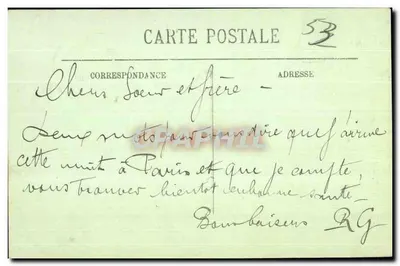 53
CARTE POSTALE
CORRESPONDANCE
ADRESSE
Chers Soeur et frère -
Deux mots pour vous dire que j'arrive
cette nuit à Paris et que je compte
vous trouver bientot en bonne santé -
Bons baisers RG